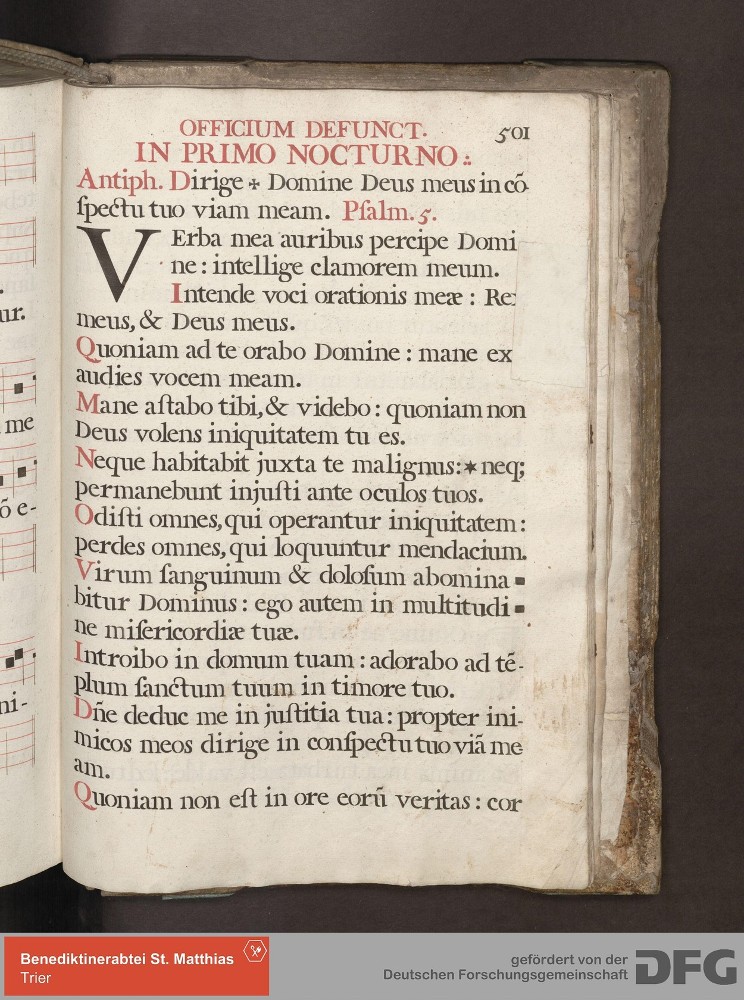 ur.
me
ō e-
ni-
OFFICIUM DEFUNCT. 501
IN PRIMO NOCTURNO:.
Antiph. Dirige + Domine Deus meus in cō
ſpectu tuo viam meam. Pſalm. 5.
VErba mea auribus percipe Domi
ne: intellige clamorem meum.
Intende voci orationis meæ: Rex
meus, & Deus meus.
Quoniam ad te orabo Domine: mane ex
audies vocem meam.
Mane aſtabo tibi, & videbo: quoniam non
Deus volens iniquitatem tu es.
Neque habitabit juxta te malignus:* neq;
permanebunt injuſti ante oculos tuos.
Odiſti omnes, qui operantur iniquitatem:
perdes omnes, qui loquuntur mendacium.
Virum ſanguinum & doloſum abomina-
bitur Dominus: ego autem in multitudi-
ne miſericordiæ tuæ.
Introibo in domum tuam: adorabo ad tē-
plum ſanctum tuum in timore tuo.
Dn̄e deduc me in juſtitia tua: propter ini-
micos meos dirige in conſpectu tuo viā me
am.
Quoniam non eſt in ore eorū veritas: cor
Benediktinerabtei St. Matthias
Trier
gefördert von der
Deutschen Forschungsgemeinschaft
DFG